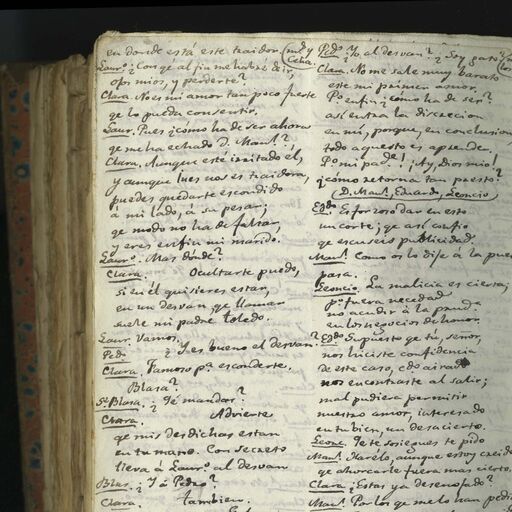 en donde está este traidor
Laur.º ¿Con qe al fin me habré de ir,
ojos mios, y perderte?
Clara. No es mi amor tan poco fuerte
qe lo pueda consentir.
Laur. Pues ¿como ha de ser ahora
qe me ha echado D. Man.l?
Clara. Aunque esté irritado él,
y aunque Ines nos es traidora,
puedes quedarte escondido
á mi lado, á su pesar;
qe modo no ha de faltar,
y eres en fin mi marido.
Laur.º Mas dónde?
Clara. Ocultarte puedo,
si en él quisieres estar,
en un desvan, qe llamar
suele mi padre Toledo.
Laur. Vamos.
Ped.º ¿Y es bueno al desvan?
Clara. Famoso p.ª esconderte.
Blasa?
Blasa. ¿Qé mandas?
Clara. Advierte
qe mis desdichas estan
en tu mano. Con secreto
lleva á Laur.º al desvan
Blas. ¿Y á Pedro?
Clara. Tambien.
Ped.º ¿Yo al desvan? ¿Soy gato?
Clara. No me sale muy barato
este mi primer amor.
P.º en fin ¿como ha de ser?
asi entra la discrecion
en mí, porque, en conclusion,
todo aquesto es aprender.
P.º mi padre! ¡Ay, Dios mio!
¿cómo retorna tan presto?
(D. Man.l, Eduardo, Leoncio)
Esforzoso dar en esto
un corte; qe asi confio
qe escuseis publicidad
Man.l Como os lo dije á la puer
pasa.
Leoncio. La malicia es cierta;
p.º fuera necedad
no acudir á la
en los negocios de honor.
Supuesto qe tú, señor,
nos hiciste confidencia
de este caso, cdo airado
nos encontraste al salir;
mal pudiera permitir
nuestro amor, interesado
en tu bien, un desacierto.
Leonc. Te te sosiegues te pido
Man.l Harélo, aunque estoy
qe ahorcarle fuera mas cierto.
Clara. ¿Estas ya desenojado?
Man.l Por los qe me lo han pedi